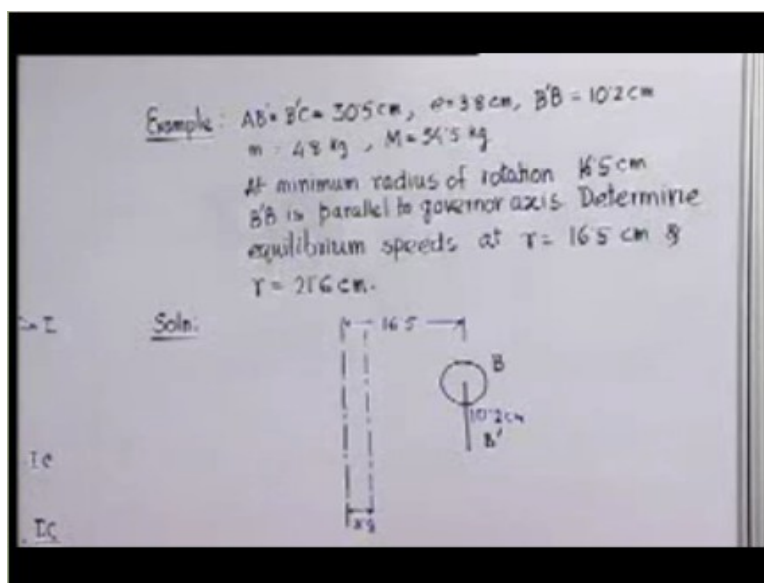 Example: AB' = B'C = 30.5 cm, e = 3.8 cm, B'B = 10.2 cm
m = 4.8 kg, M = 54.5 kg
At minimum radius of rotation 16.5 cm
B'B is parallel to governor axis. Determine
equilibrium speeds at r = 16.5 cm &
r = 21.6 cm.
Soln:
16.5
B
10.2cm
B'